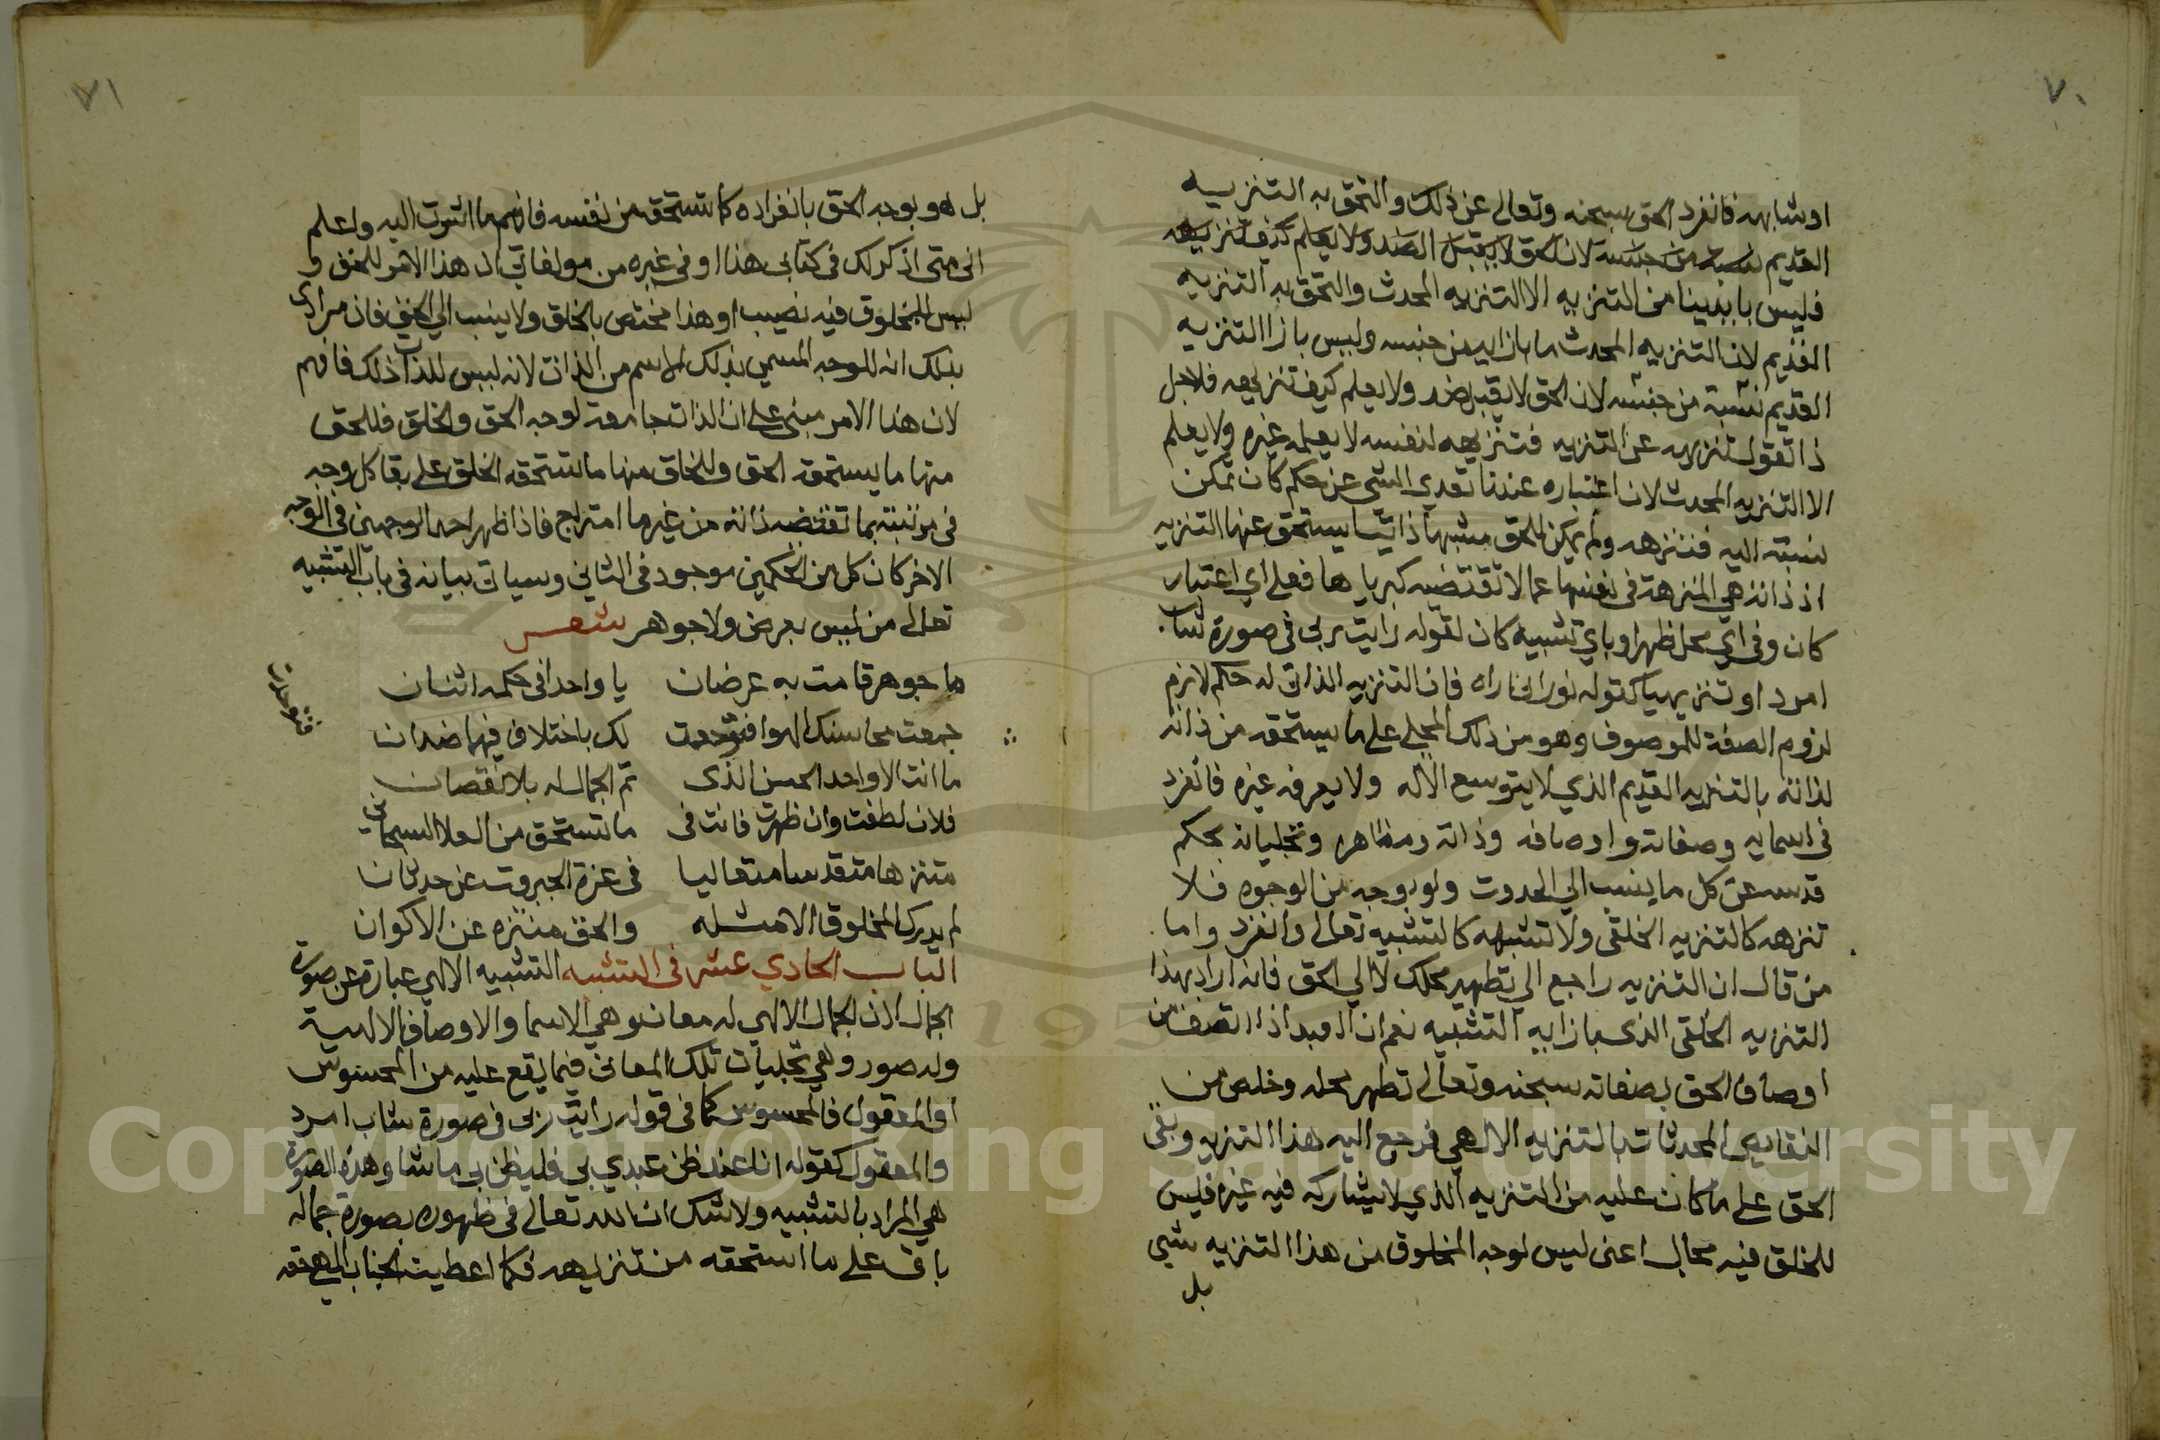 ٧٠
اوشابهه فانفرد الحق سبحنه وتعالى عن ذلك والتحق به التنزيه
القديم نسبة من جنسه لان الحق لا يقبل الضد ولا يعلم كيف تنزيهه
فليس بايدينا من التنزيه الا التنزيه المحدث والتحق به التنزيه
القديم لان التنزيه المحدث ما بازايه من جنسه وليس بازا التنزيه
القديم نسبة من جنسه لان الحق لا يقبل ضد ولا يعلم كيف تنزيهه فلاجل
ذا تقول تنزيهه عن التنزيه فتنزيهه لنفسه لا يعلمه غيره ولا يعلم
الا التنزيه المحدث لان اعتباره عندنا تعدي الشي عن حكم كان يمكن
نسبته اليه فتنزهه ولم يكن للحق مشبها ذاتيا يستحق عنها التنزيه
اذ ذاته هي المنزهة في نفسها عما لا تقتضيه كبرياها فعلى اي اعتبار
كان وفي اي محل ظهر او باي تشبيه كان لقوله رايت ربي في صورة شاب
امرد او تنزيهيا كقوله نوراني اراه فان التنزيه الذاتي له حكم لازم
لزوم الصفة للموصوف وهو من ذلك المجلي على ما يستحقه من ذاته
لذاته بالتنزيه القديم الذي لا يتوسع الا له ولا يعرفه غيره فانفرد
في اسمايه وصفاته واوصافه وذاته ومظاهره وتجلياته بحكم
قدسه عن كل ما ينسب الى الحدوث ولو بوجه من الوجوه فلا
تنزهه كالتنزيه الخلقي ولا تشبهه كالتشبيه تعالى وانفرد واما
من قال ان التنزيه راجع الى تطهير محلك لا الى الحق فانه اراد بهذا
التنزيه الخلقي الذي بازايه التشبيه نعم ان العبد اذا اتصف من
اوصاف الحق بصفاته سبحنه وتعالى تطهر محله وخلص من
النقايص المحدثات بالتنزيه الالهي فرجع اليه هذا التنزيه وبقى
الحق على ما كان عليه من التنزيه الذي لا يشاركه فيه غيره فليس
للخلق فيه مجال اعني ليس لوجه المخلوق من هذا التنزيه شي
بل
٧١
بل هو بوجه الحق بانفراده كما تستحقه من نفسه فافهم ما اشرت اليه واعلم
اني متى اذكر لك في كتابي هذا او في غيره من مولفاتي ان هذا الامر للحق و
ليس للمخلوق فيه نصيب او هذا مختص بالخلق ولا ينسب الى الحق فان مرادي
بذلك انه للوجه المسمى بذلك الاسم من الذات لانه ليس للذات ذلك فافهم
لان هذا الامر مبني على ان الذات جامعة لوجه الحق والخلق فللحق
منها ما يستحقه الحق وللخلق منها ما تستحقه الخلق على بقا كل وجه
في مرتبته بما تقتضيه ذاته من غير ما امتزاج فاذا ظهر احد الوجهين في الوجه
الاخر كان كل من الحكمين موجود في الثاني وسياتي بيانه في باب التشبيه
تعالى من ليس بعرض ولا جوهر شعر
ما جوهر قامت به عرضان يا واحدا في حكمه اثنان
جمعت محاسنك الهوا فتوحدت لك باختلاف فيهما ضدان
ما انت الا واحد الحسن الذي تم الجمال له بلا نقصان
فلان لطفت وان ظهرت فانت في ما تستحق من العلا السبحاني
متنزها متقدسا متعاليا في عزة الجبروت عن حدثان
لم يدرك المخلوق الا مثله والحق منتزه عن الاكوان
الباب الحادي عشر في التشبيه التشبيه الالهي عبارة عن صورة
الجمال لان الجمال الالهي له معان وهي الاسما والاوصاف الالهية
وله صور وهي تجليات تلك المعاني فيما يقع عليه من المحسوس
او المعقول فالمحسوس كما في قوله رايت ربي في صورة شاب امرد
والمعقول كقوله انا عند ظن عبدي بي فليظن بي ما شا وهذه الصورة
هي المراد بالتشبيه ولا شك ان الله تعالى في ظهوره بصورة جماله
باق على ما استحقه من تنزيهه فكما اعطيت الجناب الالهي حقه
Copyright © King Saud University